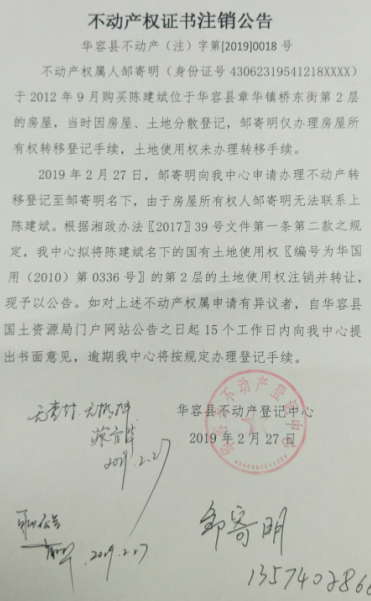 不动产权证书注销公告
华容县不动产（注）字第[2019]0018 号
不动产权属人邹寄明（身份证号 43062319541218XXXX）
于 2012 年 9 月购买陈建斌位于华容县章华镇桥东街第 2 层
的房屋，当时因房屋、土地分散登记，邹寄明仅办理房屋所
有权转移登记手续，土地使用权未办理转移手续。
2019 年 2 月 27 日，邹寄明向我中心申请办理不动产转
移登记至邹寄明名下，由于房屋所有权人邹寄明无法联系上
陈建斌。根据湘政办法〖2017〗39 号文件第一条第二款之规
定，我中心拟将陈建斌名下的国有土地使用权〖编号为华国
用（2010）第 0336 号〗的第 2 层的土地使用权注销并转让，
现予以公告。如对上述不动产权属申请有异议者，自华容县
国土资源局门户网站公告之日起 15 个工作日内向我中心提
出书面意见，逾期我中心将按规定办理登记手续。
华容县不动产登记中心
2019 年 2 月 27 日
2019.2.27
2019.2.27
邹寄明